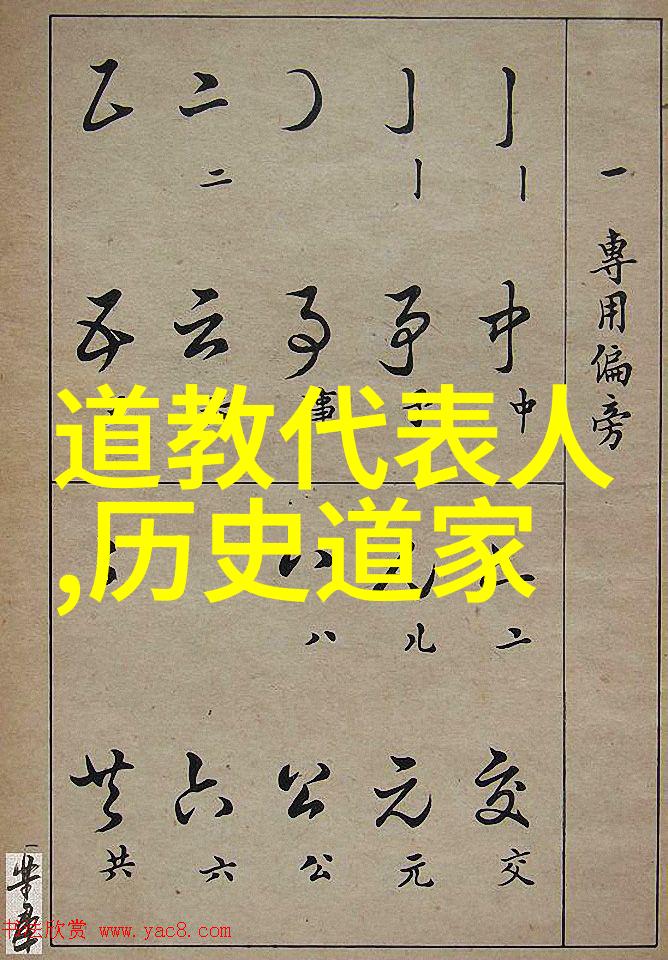 道教代表人
,历史道家
一 專用偏旁
丨
中
中
丨
事
事
二
二
云
五
亠
交
交
儿
元
元
八
八
公
公
六
六
共
共
书法欣赏 www.yac8.com